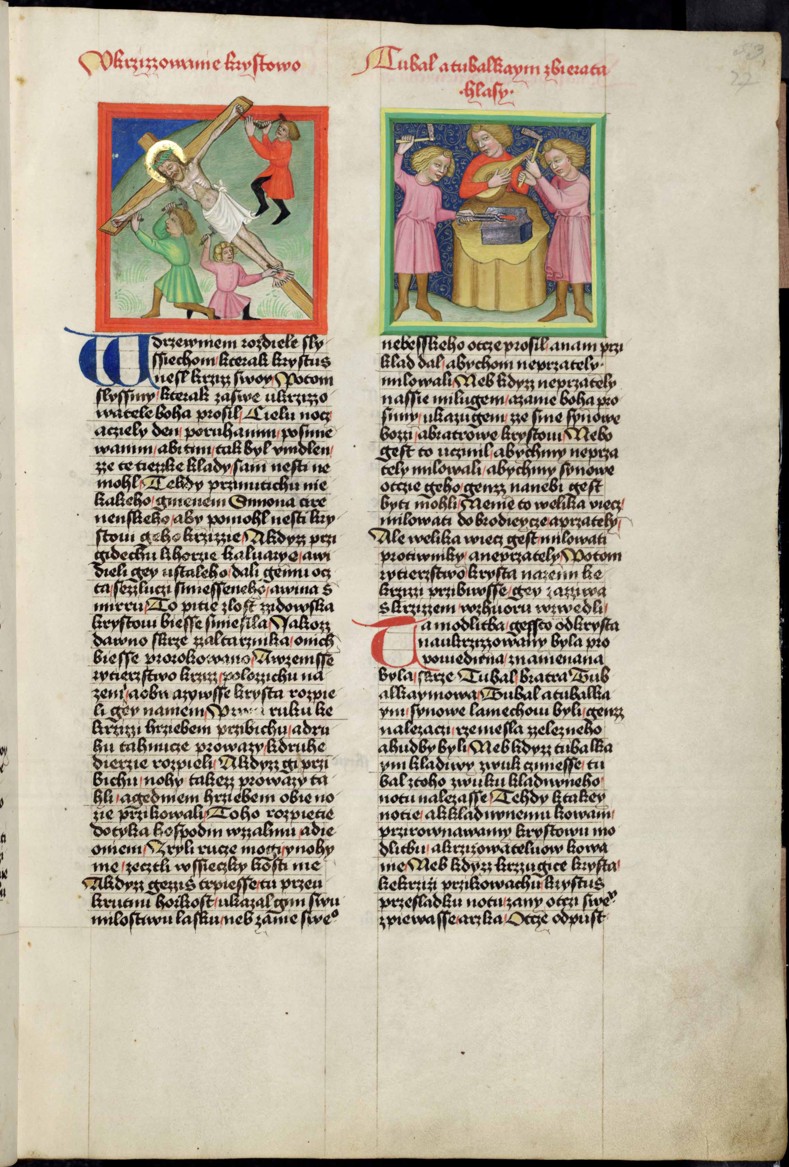 Vkrzizzowanie krystowo
W drzewniem rozdiele sly
ssiechom kterak krystus
nesl krzizz swoy Potom
slyssmy kterak zaswe ukrzizzo
watele boha prosil Cielu nocz
acziely den poruhanim posmie
wanim abitim tak byl umdlen
zze te tiezke klady sam nesti ne
mohl Tehdy przinutichu nie
kakeho gmenem Simona cire
nenskeho aby pomohl nesti kry
stowi geho krzizzie Akdyzz przi
gidechu khorze kaluarye awi
dieli gey ustaleho dali gemu ocz
ta sezzluczi smiesseneho awina s
mirru To pitie zlost zzidowska
krystowi biesse smiesila Jakozz
dawno skrze zzaltarznika onich
biesse prorokowano Awzemsse
rytierzstwo krzizz polozzichu na
zemi aobnazzywsse krysta rozpie
li gey namem ruku ke
krzizzi hrziebem przibichu adru
hu tahnucze prowazy kdruhe
dierzie rozpieli Akdyzz gi przi
bichu nohy takezz prowazy ta
hli agedniem hrziebem obie no
zie przikowali Toho rozpietie
dotyka hospodin wzzalmu adie
omem Zryli rucze mogi ynohy
me zecztli wssieczky kosti me
Akdyzz gezzis trpiesse tu przeu
krutnu horkost ukazal gim swu
milostiwu lasku neb zanie sweo
Tubal atubalkaym zbierata
hlasy
nebesskeho otcze prosil anam przi
klad dal abychom neprzately
milowali Neb kdyzz neprzately
nassie milugem azanie boha pro
simy ukazugem zze sme synowe
bozzi abratrowe krystowi Nebo
gest to ucznil abychmy neprza
tely milowali abychmy synowe
otczie geho genzz nanebi gest
byti mohli Nenie to welika wiecz
milowati dobrodieycze aprzately
Ale welika wiecz gest milowati
protiwniky aneprzately Potom
rytierzstwo krysta naremi ke
krzizzi przibiwsse gey zazziwa
s krzizzem wzhuoru wzwedli
Ta modlitba gessto odkrysta
naukrzizzowany byla pro
powiedina znamenana
byla skrze Tubal bratra Tub
alkaymowa Tubal atubalka
ym synowe lamechowi byli genzz
nalezaczi rzemiesla zzelezneho
ahudby byli Neb kdyzz tubalka
ym kladiwy zwuk cziniesse tu
bal ztoho zwuku kladiwneho
notu nalezasse Tehdy ktakey
notie akkladiwnemu kowani
przirownawamy krystowu mo
dlitbu akrzizowateluow kowa
nie Neb kdyzz krzizugice krysta
kekrizi przikowachu krystus
przesladku notu zany otczi sweo
zpiewasse arzka Otcze odpust